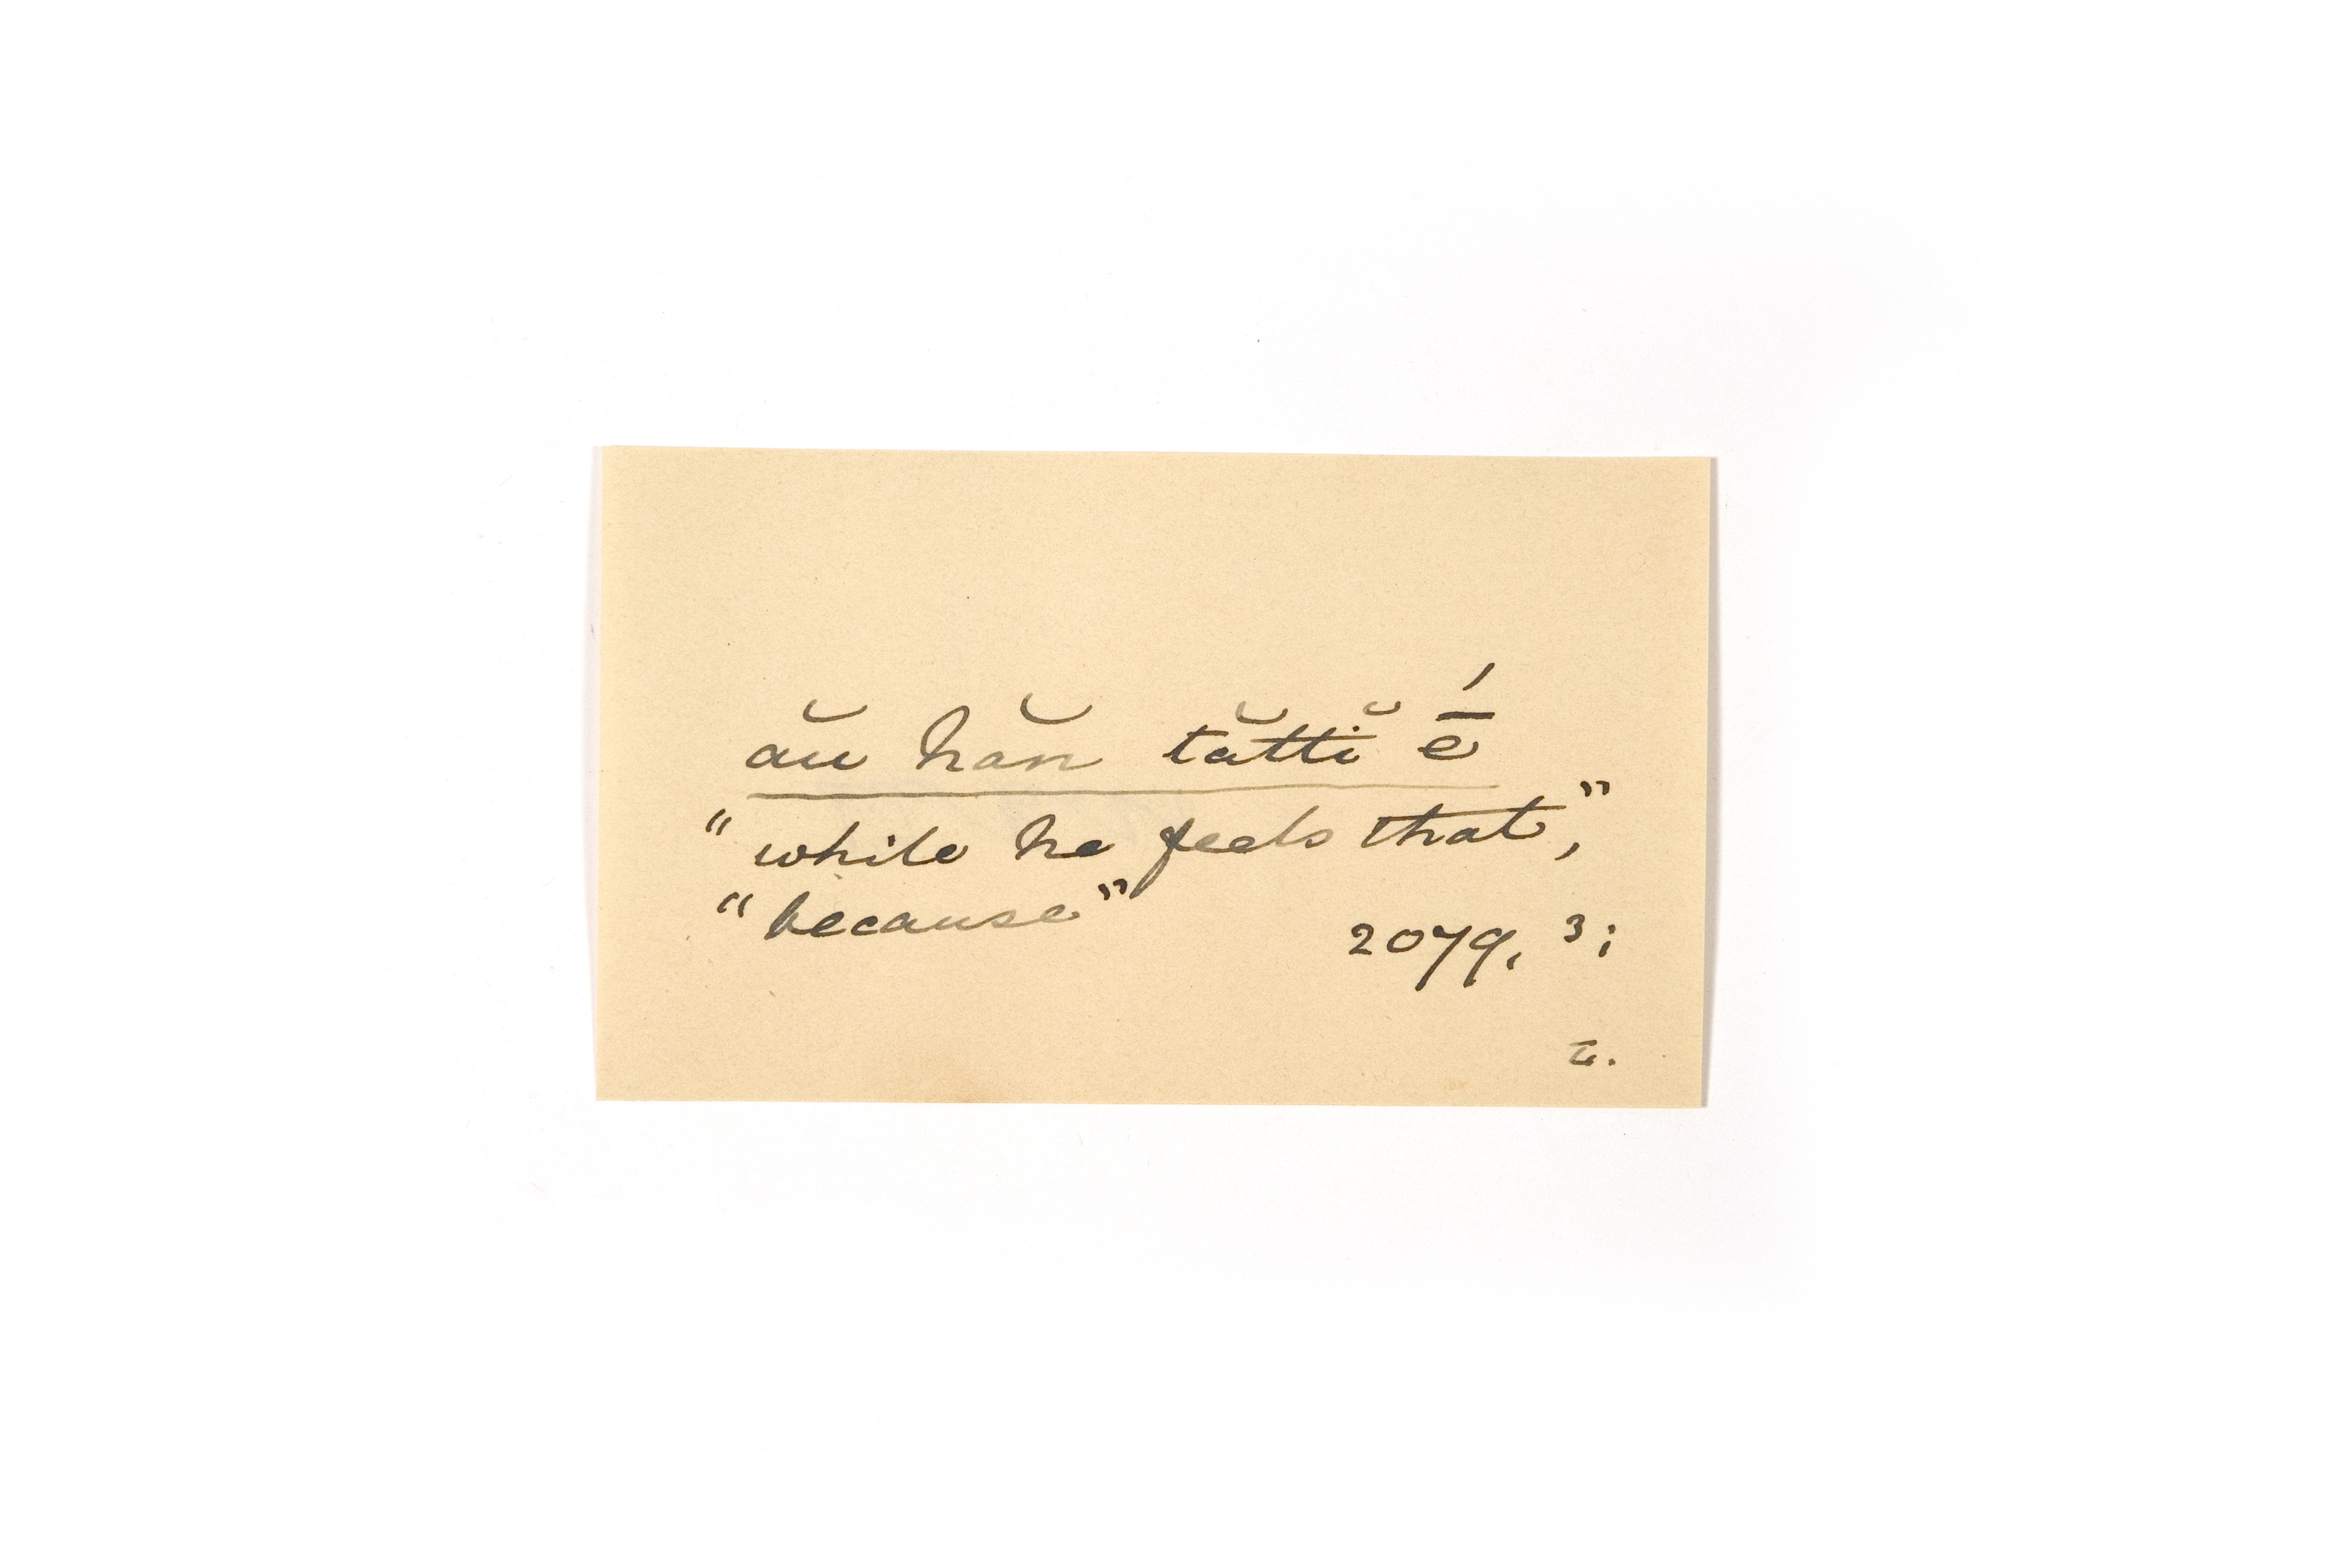 aŭ hăn tăttĭ ḗ
“while he feels that,”
“because”
2079, 3;